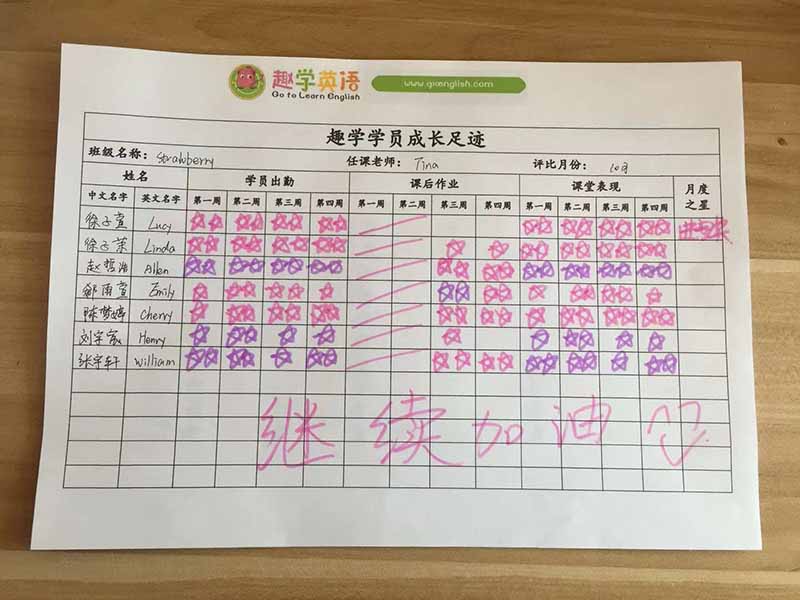 趣学英语
Go to Learn English
www.qxenglish.com
趣学学员成长足迹
班级名称: Strawberry 任课老师: Tina 评比月份: 10月
姓名 学员出勤 课后作业 课堂表现 月度之星
中文名字 英文名字 第一周 第二周 第三周 第四周 第一周 第二周 第三周 第四周 第一周 第二周 第三周 第四周
徐子萱 Lucy 进步之星
徐子茉 Linda
赵哲浩 Allen
邹雨萱 Emily
陈梦婷 Cherry
刘宇宸 Henry
张宇轩 William
继续加油